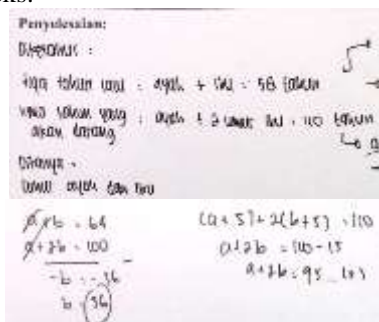 Penyelesaian:
Diketahui :
tiga tahun lalu : ayah + ibu = 58 tahun
lima tahun yang : ayah + 2 umur ibu = 110 tahun
akan datang
Ditanya :
umur ayah dan ibu
a + b = 64
a + 2b = 100
-b = -36
b = 36
(a + 5) + 2(b + 5) = 110
a + 2b = 110 - 15
a + 2b = 95